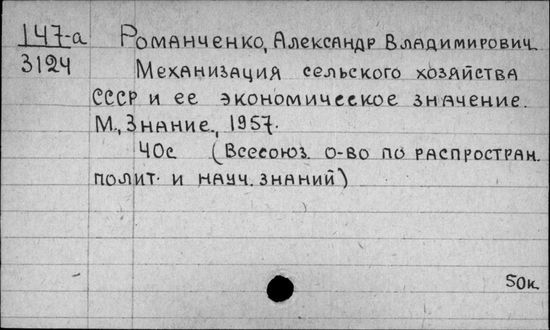 147-а Романченко, Александр Владимирович.
3124 Механизация сельского хозяйства
СССР и ее экономическое значение.
М., Знание., 1957.
40с (Всесоюз. о-во по распростран.
полит. и науч. знаний)
50к.